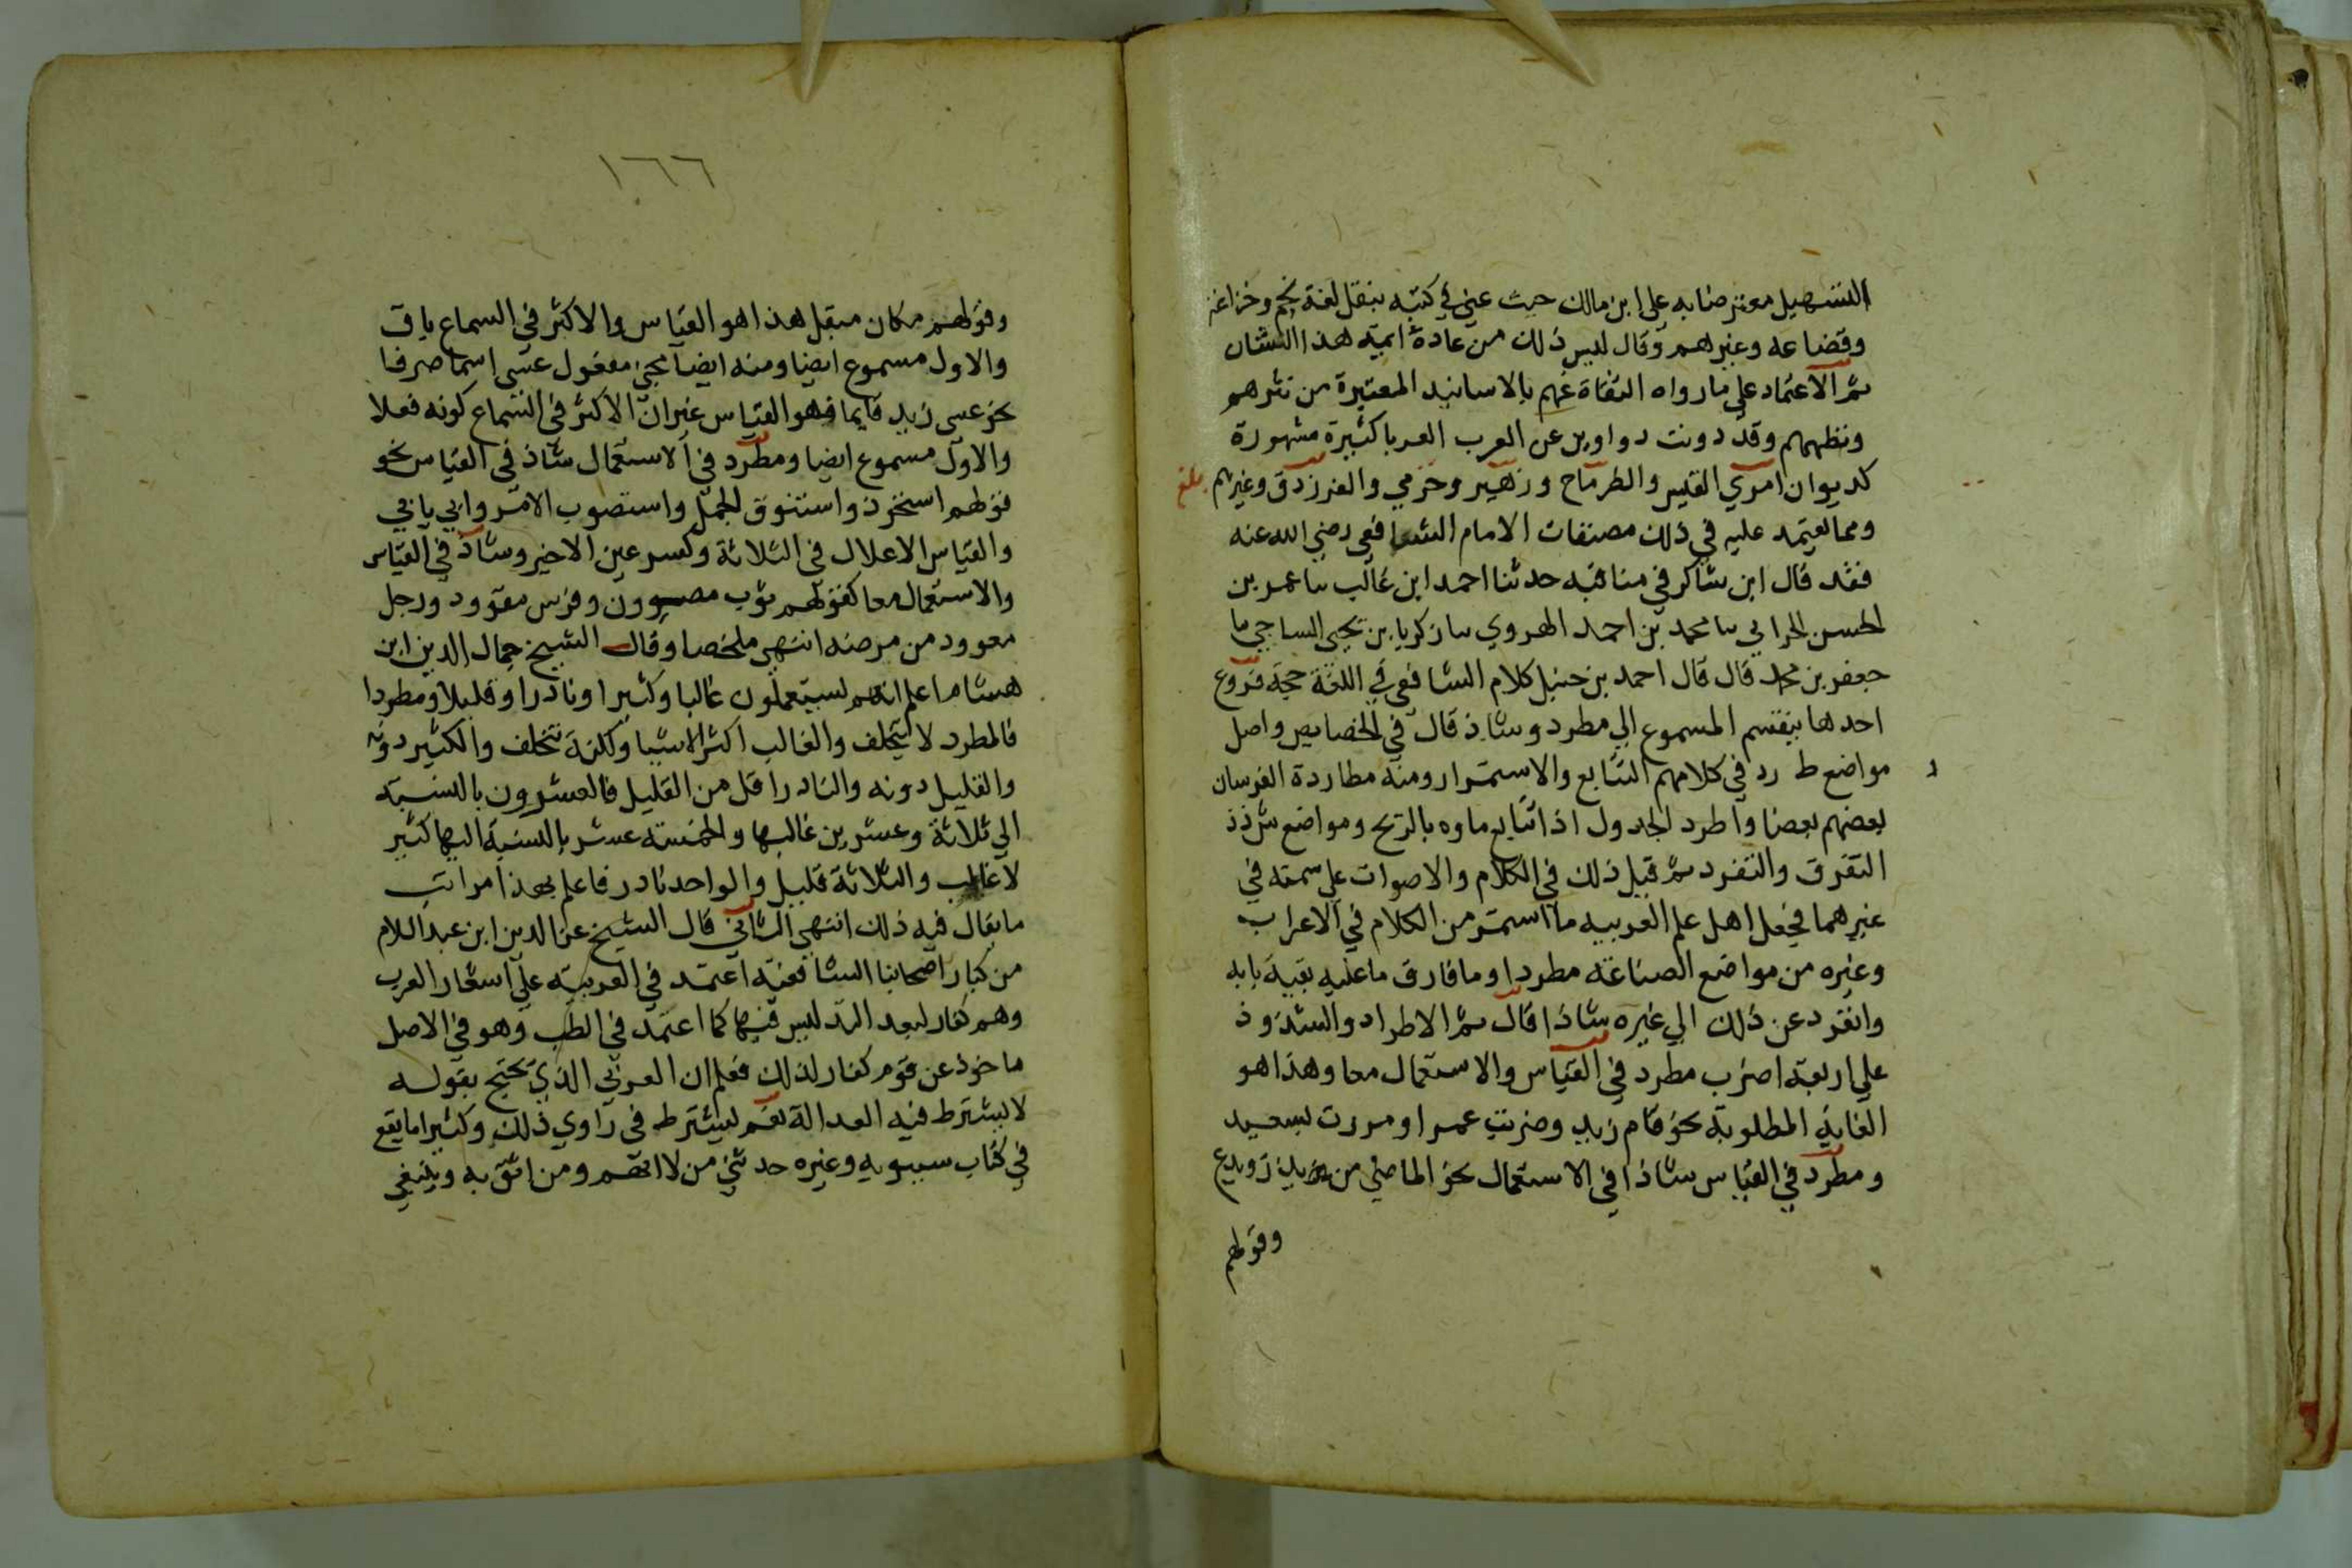 التسهيل معترضا به على ابن مالك حيث عني في كتبه بنقل لغة لخم وخزاعة
وقضاعه وغيرهم وقال ليس ذلك من عادة ايمة هذا الشان
ثم الاعتماد علي ما رواه الثقاة عنهم بالاسانيد المعتبرة من نثرهم
ونظمهم وقد دونت دواوين عن العرب العربا كثيرة مشهورة
كديوان امري القيس والطرماح وزهير وجرير والفرزدق وغيرهم بلغ
ومما يعتمد عليه في ذلك مصنفات الامام الشافعي رضي الله عنه
فقد قال ابن شاكر في مناقبه حدثنا احمد ابن غالب سا عمر بن
الحسن الحراني سا محمد بن احمد الهروي سا زكريا بن يحيى الساجي سا
جعفر بن محمد قال قال احمد بن حنبل كلام الشافعي في اللغة حجة فروع
احدها ينقسم المسموع الي مطرد وشاذ قال في الخصايص واصل
مواضع ط رد في كلامهم التتابع والاستمرار ومنه مطاردة الفرسان
بعضهم بعضا واطرد الجدول اذا تتابع ماوه بالريح ومواضع ش ذ ذ
التفرق والتفرد ثم قيل ذلك في الكلام والاصوات علي سمته في
غيرهما فجعل اهل علم العربيه ما استمر من الكلام في الاعراب
وغيره من مواضع الصناعة مطردا وما فارق ما عليه بقية بابه
وانفرد عن ذلك الي غيره شاذا قال ثم الاطراد والشذوذ
علي اربعة اضرب مطرد في القياس والاستعمال معا وهذا هو
الغاية المطلوبة نحو قام زيد وضربت عمرا ومررت بسعيد
ومطرد في القياس شاذا في الاستعمال نحو الماضي من يذر ويدع
وقولهم
١٦٦
وقولهم مكان مبقل هذا هو القياس والاكثر في السماع باقل
والاول مسموع ايضا ومنه ايضا مجي مفعول عسى اسما صرفا
نحو عسى زيد قايما فهو القياس غير ان الاكثر في السماع كونه فعلا
والاول مسموع ايضا ومطرد في الاستعمال شاذ في القياس نحو
قولهم استحوذ واستنوق الجمل واستصوب الامر وابي يابي
والقياس الاعلال في الثلاثة وكسر عين الاخير وشاذ في القياس
والاستعمال معا كقولهم ثوب مصوون وفرس مقوود ورجل
معوود من مرضه انتهى ملخصا وقال الشيخ جمال الدين ابن
هشام اعلم انهم يستعملون غالبا وكثيرا ونادرا وقليلا ومطردا
فالمطرد لا يتخلف والغالب اكثر الاشيا ولكنه يتخلف والكثير دونه
والقليل دونه والنادر اقل من القليل فالعشرون بالنسبة
الي ثلاثة وعشرين غالبها والخمسة عشر بالنسبة اليها كثير
لا غالب والثلاثة قليل والواحد نادر فاعلم بهذا مراتب
ما يقال فيه ذلك انتهى الثاني قال الشيخ عز الدين ابن عبد السلام
من كبار اصحابنا الشافعية اعتمد في العربية علي اشعار العرب
وهم كفار لبعد التدليس فيها كما اعتمد في الطب وهو في الاصل
ماخوذ عن قوم كفار لذلك فعلم ان العربي الذي يحتج بقوله
لا يشترط فيه العدالة نعم يشترط في راوي ذلك وكثيرا ما يقع
في كتاب سيبويه وغيره حدثني من لا اتهم ومن اثق به وينبغي